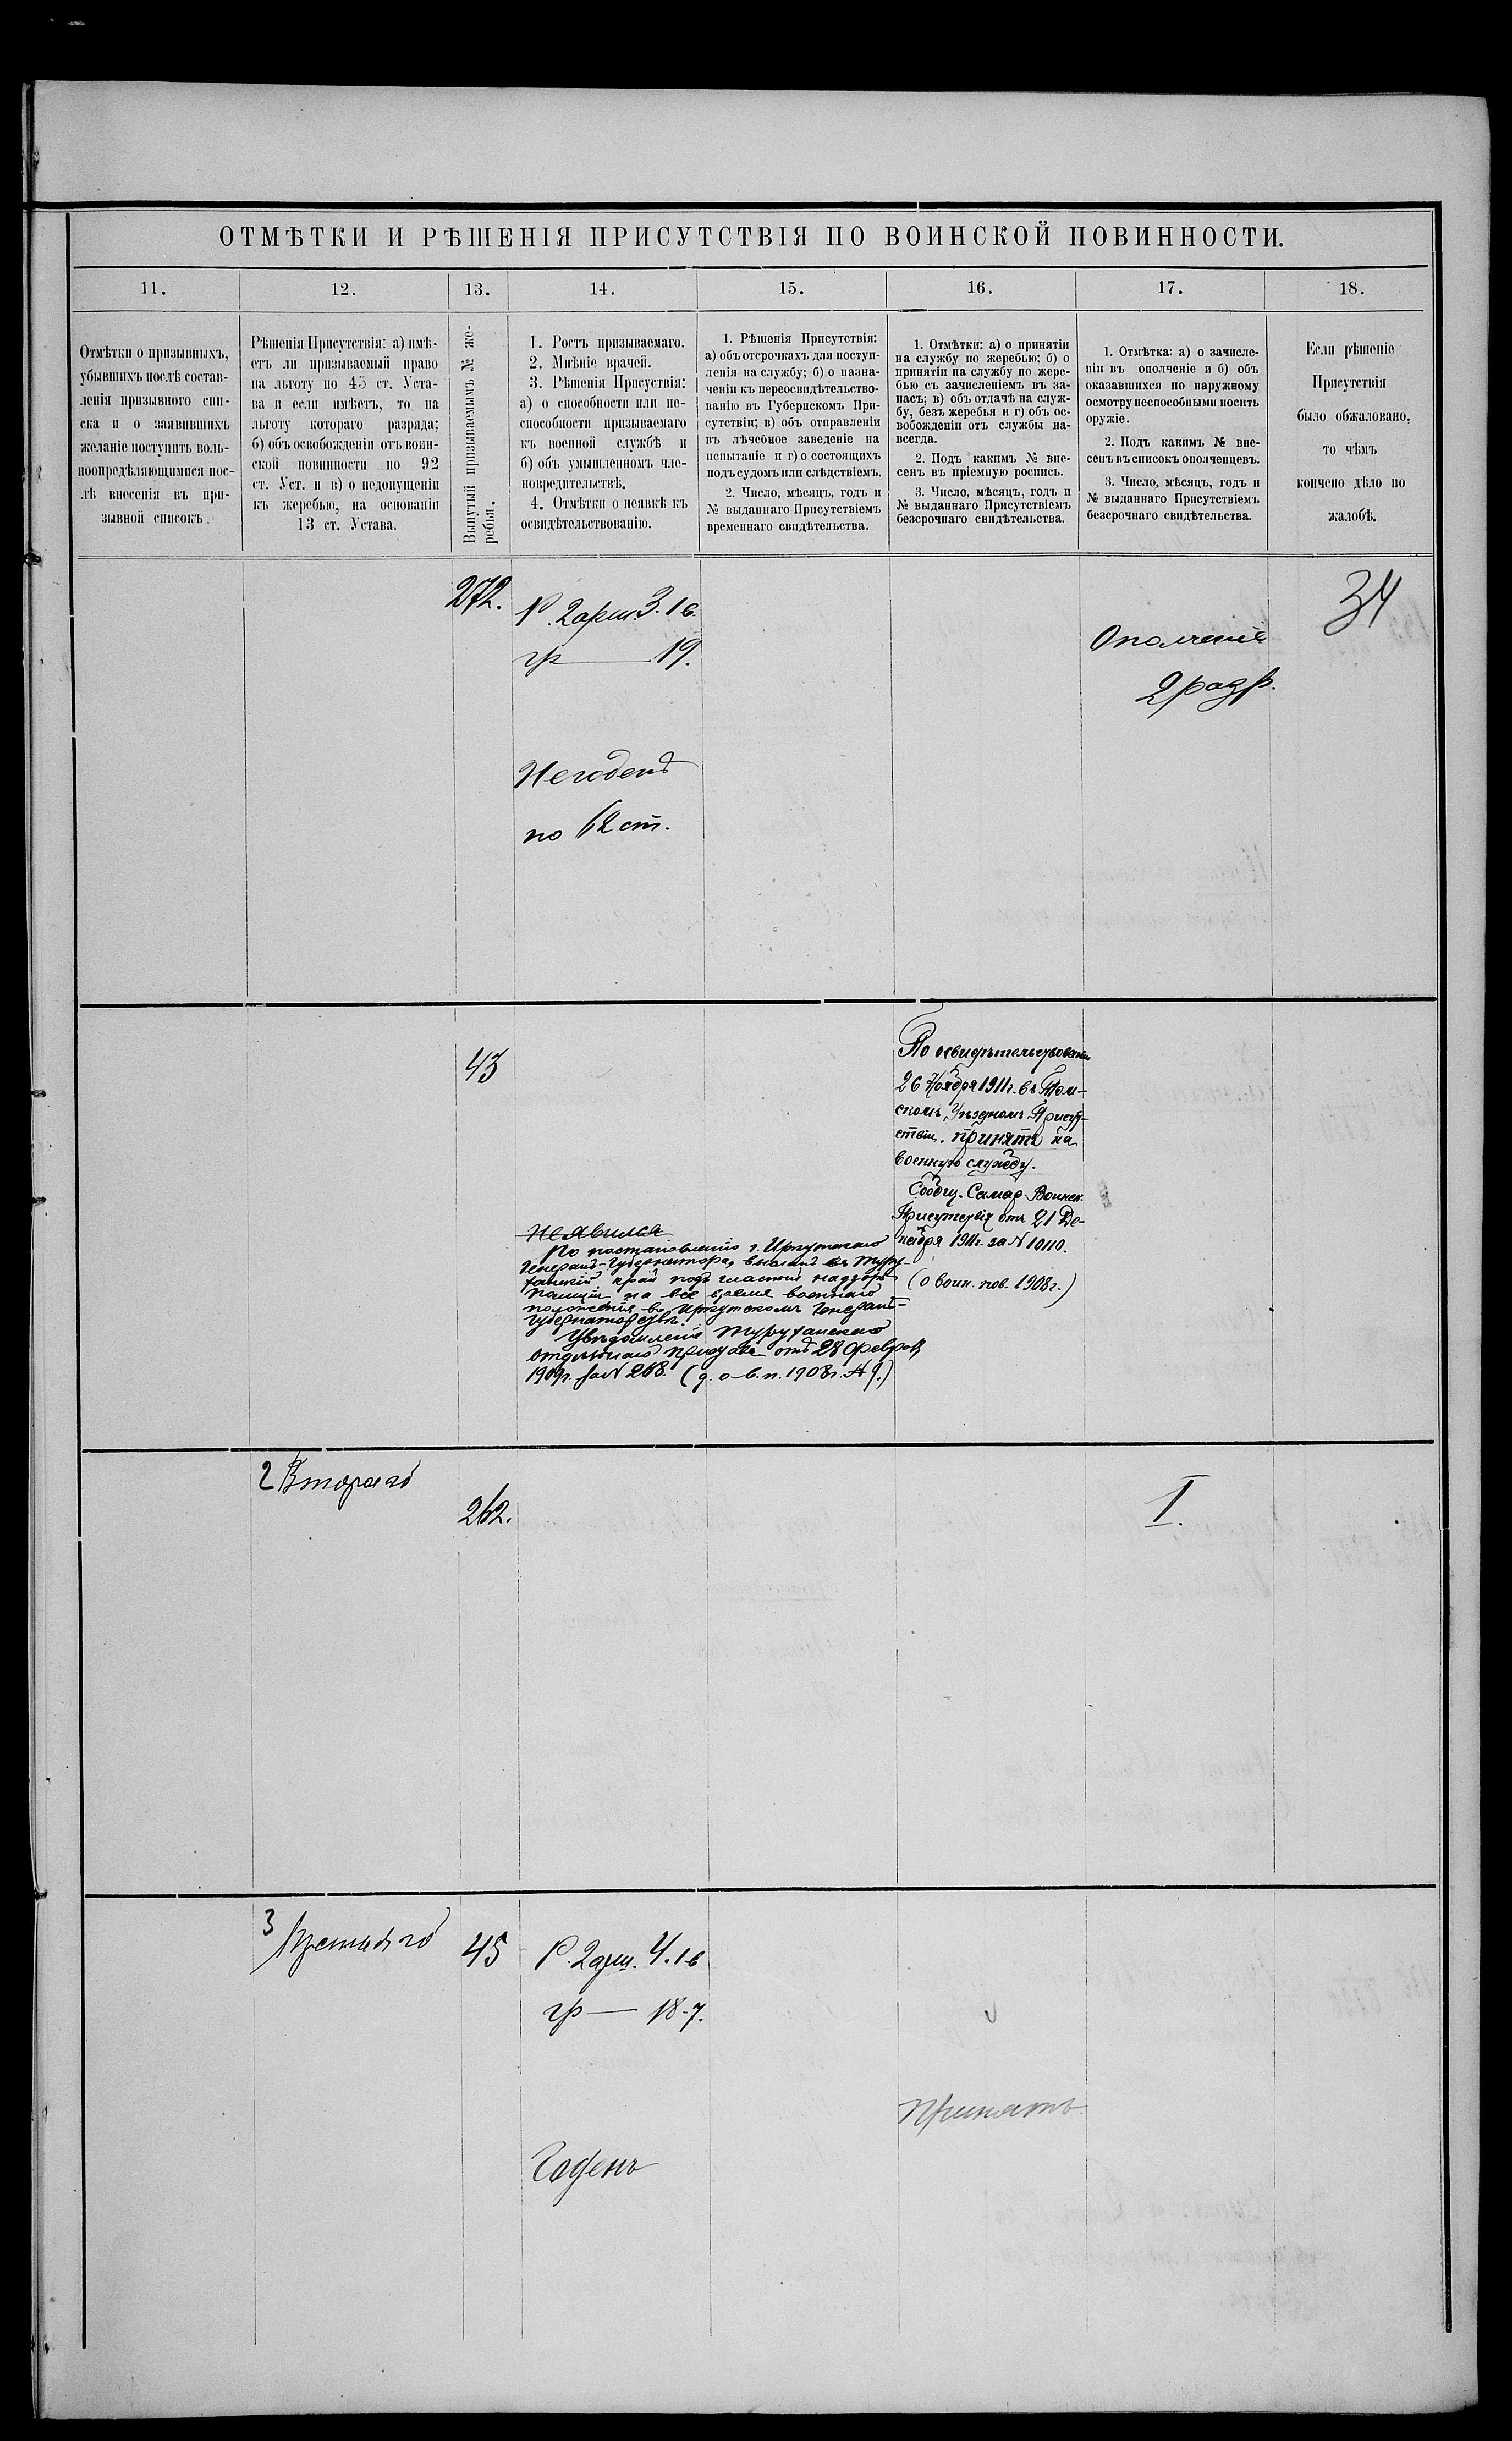 ОТМѢТКИ И РѢШЕНІЯ ПРИСУТСТВІЯ ПО ВОИНСКОЙ ПОВИННОСТИ.
11.
12.
13.
14.
15.
16.
17.
18.
Отмѣтки о призывныхъ,
убывшихъ послѣ состав-
ленія призывного спи-
ска и о заявившихъ
желаніе поступить воль-
ноопредѣляющимися пос-
лѣ внесенія въ при-
зывной списокъ.
Рѣшенія Присутствія: а) имѣ-
етъ ли призываемый право
на льготу по 45 ст. Уста-
ва и если имѣетъ, то на
льготу котораго разряда;
б) объ освобожденіи отъ воин-
ской повинности по 92
ст. Уст. и в) о недопущеніи
къ жеребью, на основаніи
13 ст. Устава.
Вынутый призываемымъ № же-
ребья.
1. Ростъ призываемаго.
2. Мнѣніе врачей.
3. Рѣшенія Присуствія:
а) о способности или не-
способности призываемаго
къ военной службѣ и
б) объ умышленномъ чле-
новредительствѣ.
4. Отмѣтки о неявкѣ къ
освидѣтельствованію.
1. Рѣшенія Присутствія:
а) объ отсрочкахъ для поступ-
ленія на службу; б) о назна-
ченіи къ переосвидѣтельство-
ванію въ Губернскомъ При-
сутствіи; в) объ отправленіи
въ лѣчебное заведеніе на
испытаніе и г) о состоящихъ
подъ судомъ или слѣдствіемъ.
2. Число, мѣсяцъ, годъ и
№ выданнаго Присутствіемъ
временнаго свидѣтельства.
1. Отмѣтки: а) о принятіи
на службу по жеребью; б) о
принятіи на службу по жере-
бью съ зачисленіемъ въ за-
пасъ; в) объ отдачѣ на служ-
бу, безъ жеребья и г) объ ос-
вобожденіи отъ службы на-
всегда.
2. Подъ какимъ № вне-
сенъ въ пріемную роспись.
3. Число, мѣсяцъ, годъ и
№ выданнаго Присутствіемъ
безсрочнаго свидѣтельства.
1. Отмѣтка: а) о зачисле-
ніи въ ополченіе и б) объ
оказавшихся по наружному
осмотру неспособными носить
оружіе.
2. Подъ какимъ № вне-
сенъ въ списокъ ополченцевъ.
3. Число, мѣсяцъ, годъ и
№ выданнаго Присутствіемъ
безсрочнаго свидѣтельства.
Если рѣшеніе
Присутствія
было обжаловано,
то чѣмъ
кончено дѣло по
жалобѣ.
272.
Р. 2 арш. 3. 1 в.
гр — 19.
Негоденъ
по 62 ст.
Ополченіе
2 разр.
34
43
Неявился
По постановленію г. Иркутскаго
Генералъ-Губернатора, высланъ въ Туру-
ханскій край подъ гласный надзоръ
полиціи на все время военнаго
положенія въ Иркутскомъ Генералъ-
Губернаторствѣ.
Увѣдомленіе Туруханскаго
отдѣльнаго пристава отъ 28 Февраля
1909г. за № 268. (д. о в. п. 1908г. № 9.)
По освидѣтельствованіи
26 Ноября 1911г. въ Том-
скомъ Уѣздномъ Присут-
ствіи, принятъ на
военную службу.
Сообщ. Самар. Воинск.
Присутствія отъ 21 Де-
кабря 1911г. за № 10110.
(о воин. пов. 1908г.)
2 Второго
262.
I.
3 Третьяго
45
Р. 2 арш. 4. 1 в
гр — 18-7.
Годенъ
Принятъ